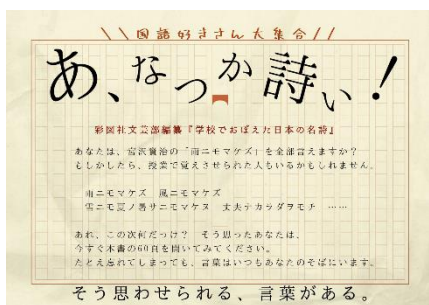 ＼＼国語好きさん大集合／／
あ、なつか詩い！
彩図社文芸部編纂『学校でおぼえた日本の名詩』
あなたは、宮沢賢治の「雨ニモマケズ」を全部言えますか？
もしかしたら、授業で覚えさせられた人もいるかもしれません。
雨ニモマケズ　風ニモマケズ
雪ニモ夏ノ暑サニモマケヌ　丈夫ナカラダヲモチ　……
あれ、この次何だっけ？　そう思ったあなたは、
今すぐ本書の60頁を開いてみてください。
たとえ忘れてしまっても、言葉はいつもあなたのそばにいます。
そう思わせられる、言葉がある。